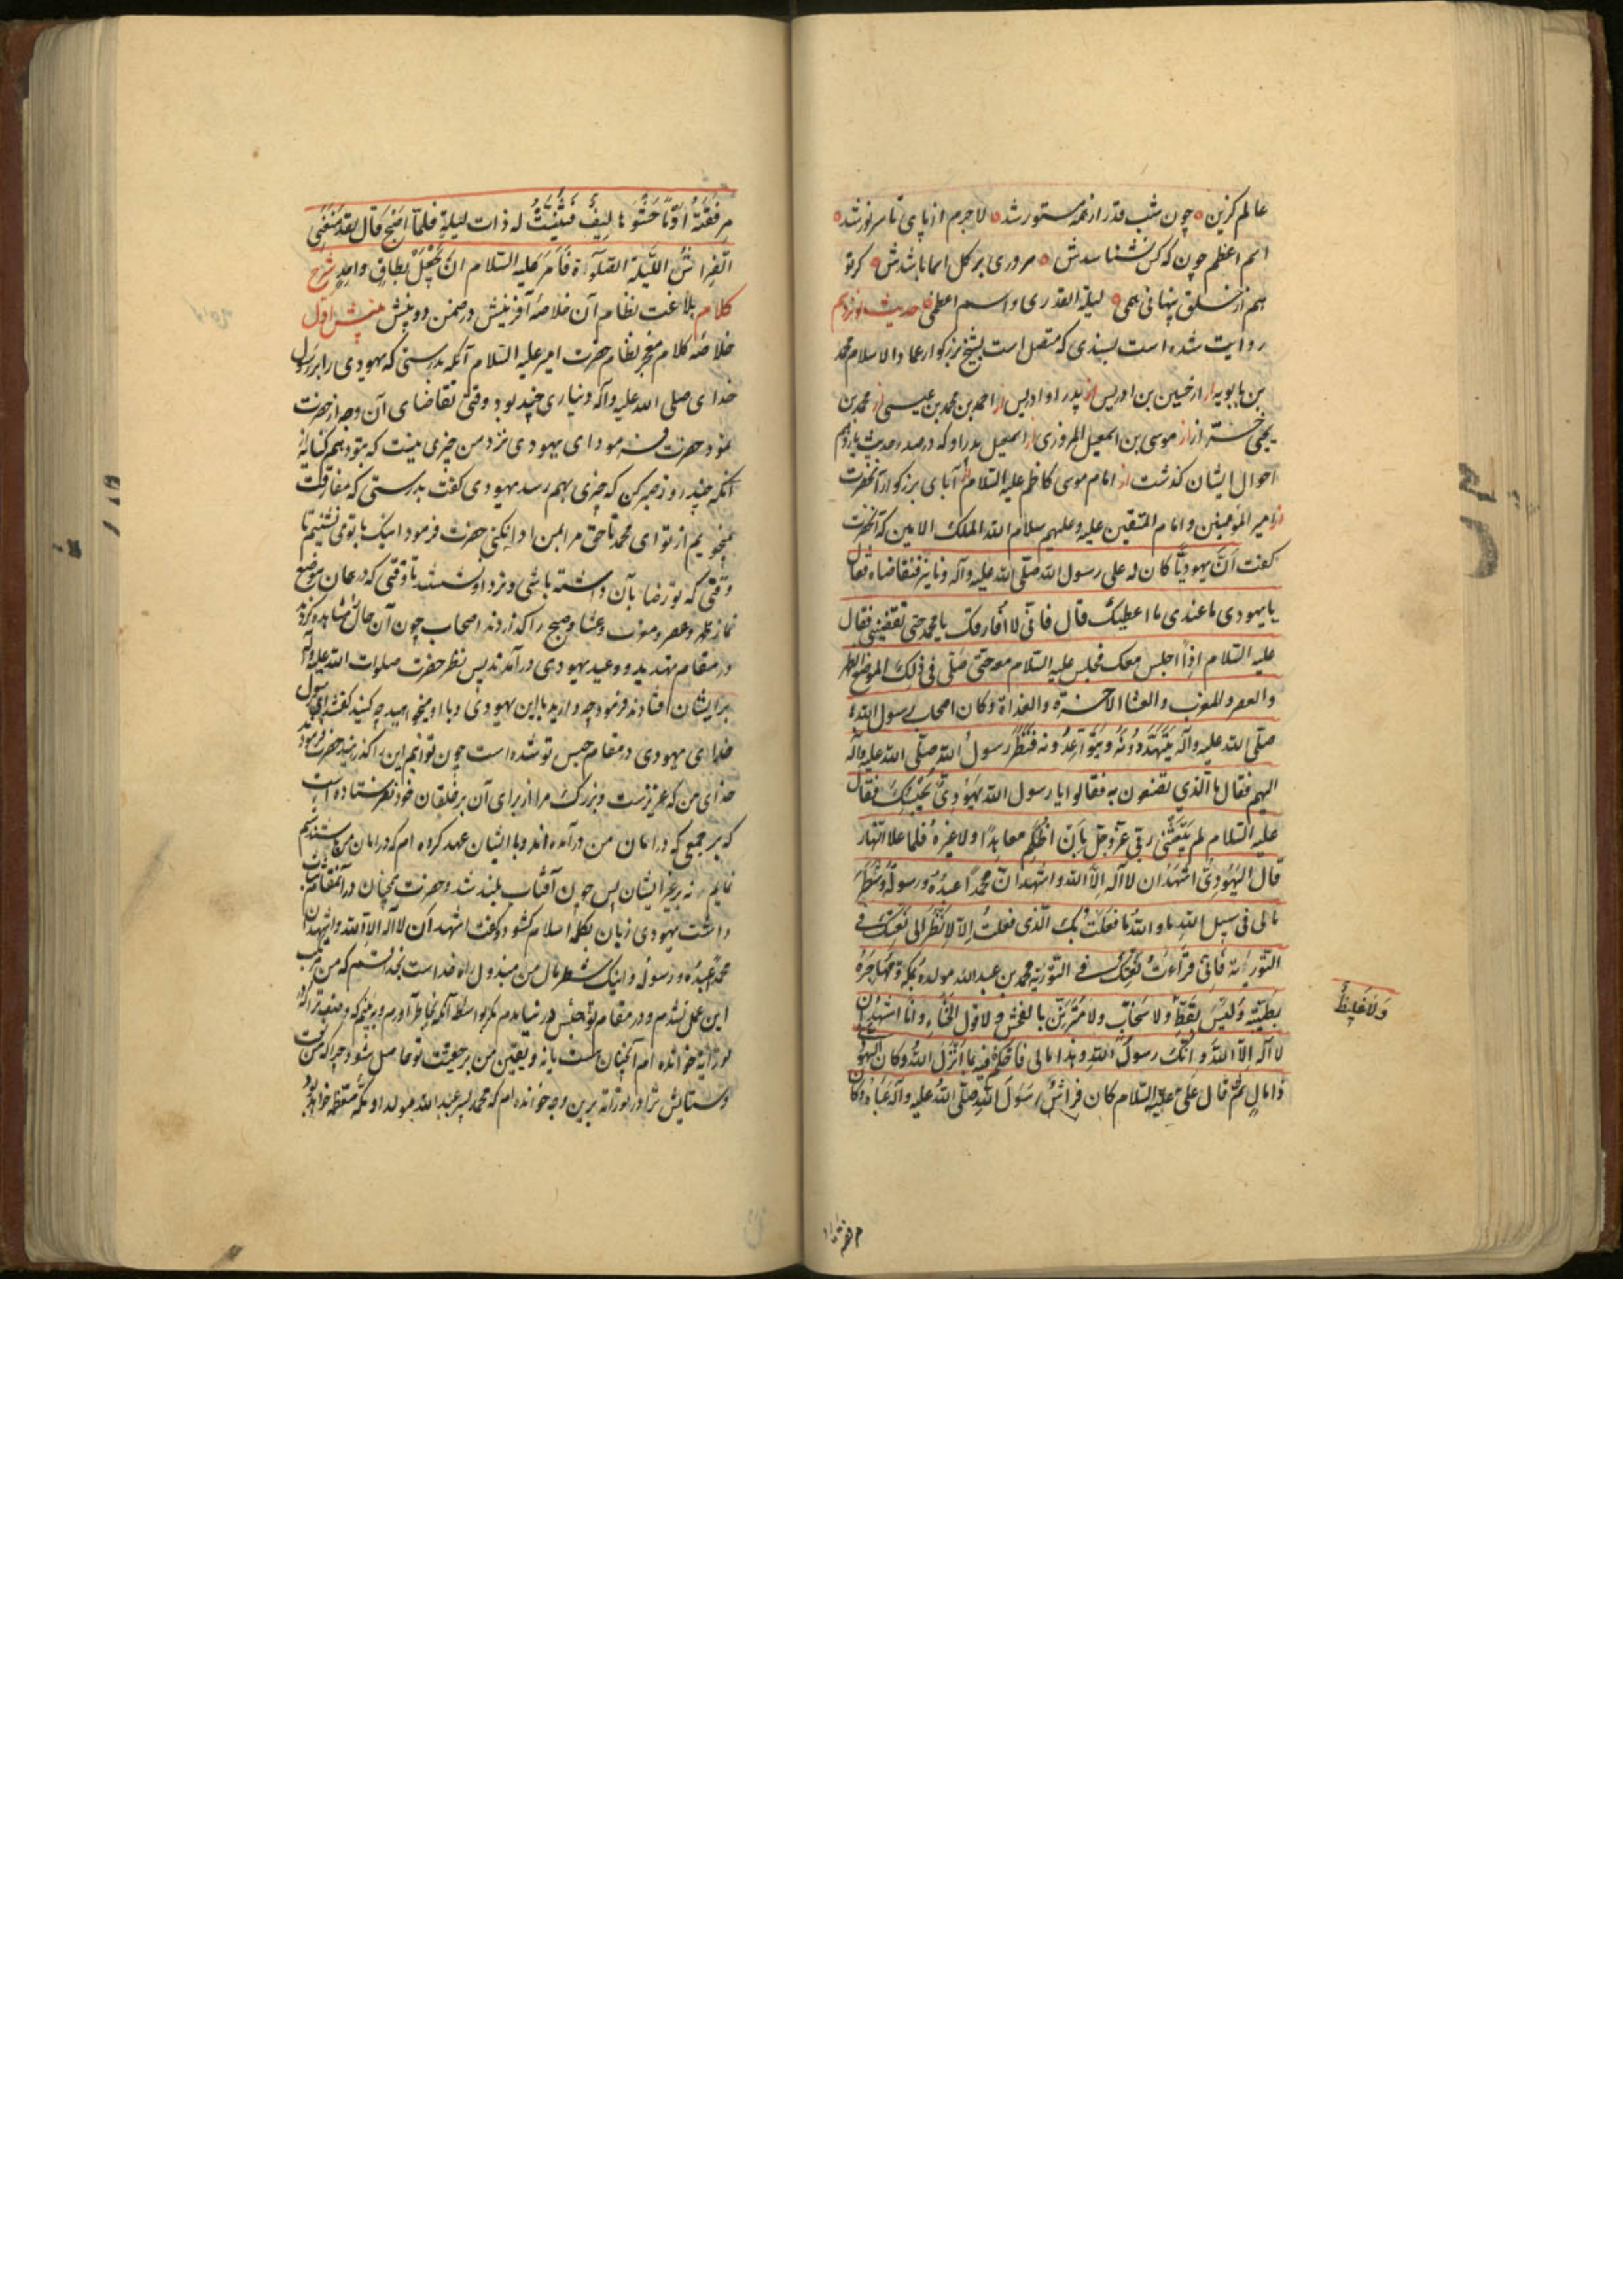 عالم کزین ه چون شب قدر از همه مستور شد ه لاجرم از پای تا سر نور شد ه
اسم اعظم چون که کس نشناسدش ه سروری بر کل اسما باشدش ه کر تو
هم از خلق پنهانی همی ه لیلة القدری و اسم اعظمی ه حدیث نوزدهم
روایت شده است بسندی که متصل است بشیخ بزرکوار عماد الاسلام محمد
بن بابویه از حسین بن ادریس از پدر او ادریس از احمد بن محمد بن عیسی از محمد بن
یحیی خزاز از موسی بن اسمعیل المروزی از اسمعیل پدر او که در صدر حدیث یازدهم
احوال ایشان کذشت از امام موسی کاظم علیه السلام از آبای بزرکوار آنحضرت
از امیر المؤمنین و امام المتقین علیه و علیهم سلام الله الملک الامین که آنحضرت
کفت اَنَّ یهودیًّا کان له علی رسول الله صلّی الله علیه وآله دنانیر فتقاضاه فقال
یا یهودی ما عندی ما اعطیک قال فانّی لا اُفارقک یا محمد حتی تقضینی فقال
علیه السلام اذاً اجلس معک فجلس علیه السلام معه حتی صَلّی فی ذلک الموضع الظهر
والعصر والمغرب والعشا الآخرة والغداة وکان اصحاب رسول الله
صلّی الله علیه وآله یَتَهَدَّدُونَهُ ویَتَواعَدُونه فنظَرَ رسولُ الله صلّی الله علیه وآله
الیهم فقال ما الّذی تصنعون به فقالوا یا رسول الله یَهُودیٌّ یَحْبِسُکَ فقال
علیه السلام لم یَبْعَثْنی ربّی عزّ وجلّ بِاَن اظلِم معاهِدًا ولا غیرهُ فلما علا النّهار
قال الیَهُودِیُّ اَشهَدُ ان لا آله اِلاّ الله واشهد انّ محمّدًا عبدُهُ ورسولُهُ وشَطْرُ
مالی فی سبیل اللهِ اما واللهِ ما فعلتُ بک الّذی فعلتُ اِلاّ لِاَنظُرَ اِلی نَعتِکَ فی
التّوریة فَاِنّی قرأءتُ نعتکَ فی التّوریة محمد بن عبدالله مولده بمکة ومُهاجَرُهُ
بطَیبةَ ولَیسَ بفَظٍّ ولا سَخّابٍ ولا مُتَزَیِّنٍ بالفُحش ولا قول الخَناءِ وانا اشهد ان
لا آله اِلاّ اللهُ وانّک رسولُ اللهِ وهذا مالی فاحکم فیه بما انزل اللهُ وکان الیهودی
ذا مالٍ ثمّ قال علیٌّ علیه السّلام کان فِراشُ رسول اللهِ صلّی اللهُ علیه وآله عَباءة وکان
ولا غلیظٌ
مرفقته
مِرفَقَتهُ اُدُمًا حَشْوُها لِیفٌ فَثُنِیَتْ له ذات لیلةٍ فلمّا اصبح قال لقد مَنَعَنِی
الفراشُ اللَّیلةَ الصّلوٰةَ فَاَمَرَ علیه السلام ان یُجْعَلَ بطاقٍ واحدٍ شرح
کلام بلاغت نظام آن خلاصهٔ آفرینش در ضمن دو بینش بینش اول
خلاصهٔ کلام معجز نظام حضرت امیر علیه السلام آنکه بدرستی که یهودی را بر رسول
خدای صلی الله علیه وآله دیناری چند بود وقتی تقاضای آن وجه از حضرت
نمود حضرت فرمود ای یهودی نزد من چیزی نیست که بتو دهم
آنکه چند روز صبر کن که چیزی بهم رسد یهودی کفت بدرستی که مفارقت
نمیجویم از تو ای محمد تا حق مرا بمن ادا نکنی حضرت فرمود اینک با تو می نشینم تا
وقتی که تو رضا بآن داشته باشی و نزد او نشستند تا وقتی که در همان موضع
نماز ظهر وعصر ومغرب وعشا وصبح را کذاردند اصحاب چون آن حال مشاهده کردند
در مقام تهدید و وعید یهودی درآمدند پس نظر حضرت صلوات الله علیه وآله
بر ایشان افتاد فرمود چه دارید با این یهودی و با او میخواهید چه کنید کفتند ای رسول
خدا یهودی در مقام حبس تو شده است چون توانیم این را کذرانید حضرت فرمود
خدای من که عزیزست و بزرکست مرا از برای آن بر خلقان خود نفرستاده است
که بر جمعی که در امان من درآمده اند و با ایشان عهد کرده ام که در امان من باشند ستم
نمایم نه بر غیر ایشان پس چون آفتاب بلند شد وحضرت همچنان در آنمقام
داشت یهودی زبان بکلمه اسلام کشود و کفت اشهد ان لا اله الا الله واشهد ان
محمدًا عبدُه ورسولُه و اینک شطر مال من مبذول راه خداست بخدا قسم که من مرتکب
این عمل نشدم و در مقام حبس تو در نیامدم مکر بواسطه آنکه بخاطر آورم و ببینم که وصفی که
توریة خوانده ام آنچنان هست یا نه و یقین من بر حقیت تو حاصل شود چرا که من نعت
وستایش ترا در توراة برین وجه خوانده ام که محمد پسر عبد الله مولد او مکه معظمه خواهد بود